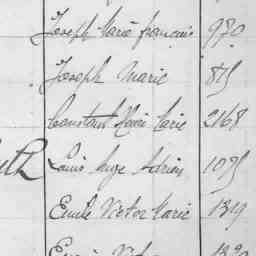 Joseph Marie françois 930
Joseph Marie 815
Constant Marie 2168
Louis Ange Adrien 1095
Emile Victor Marie 1319